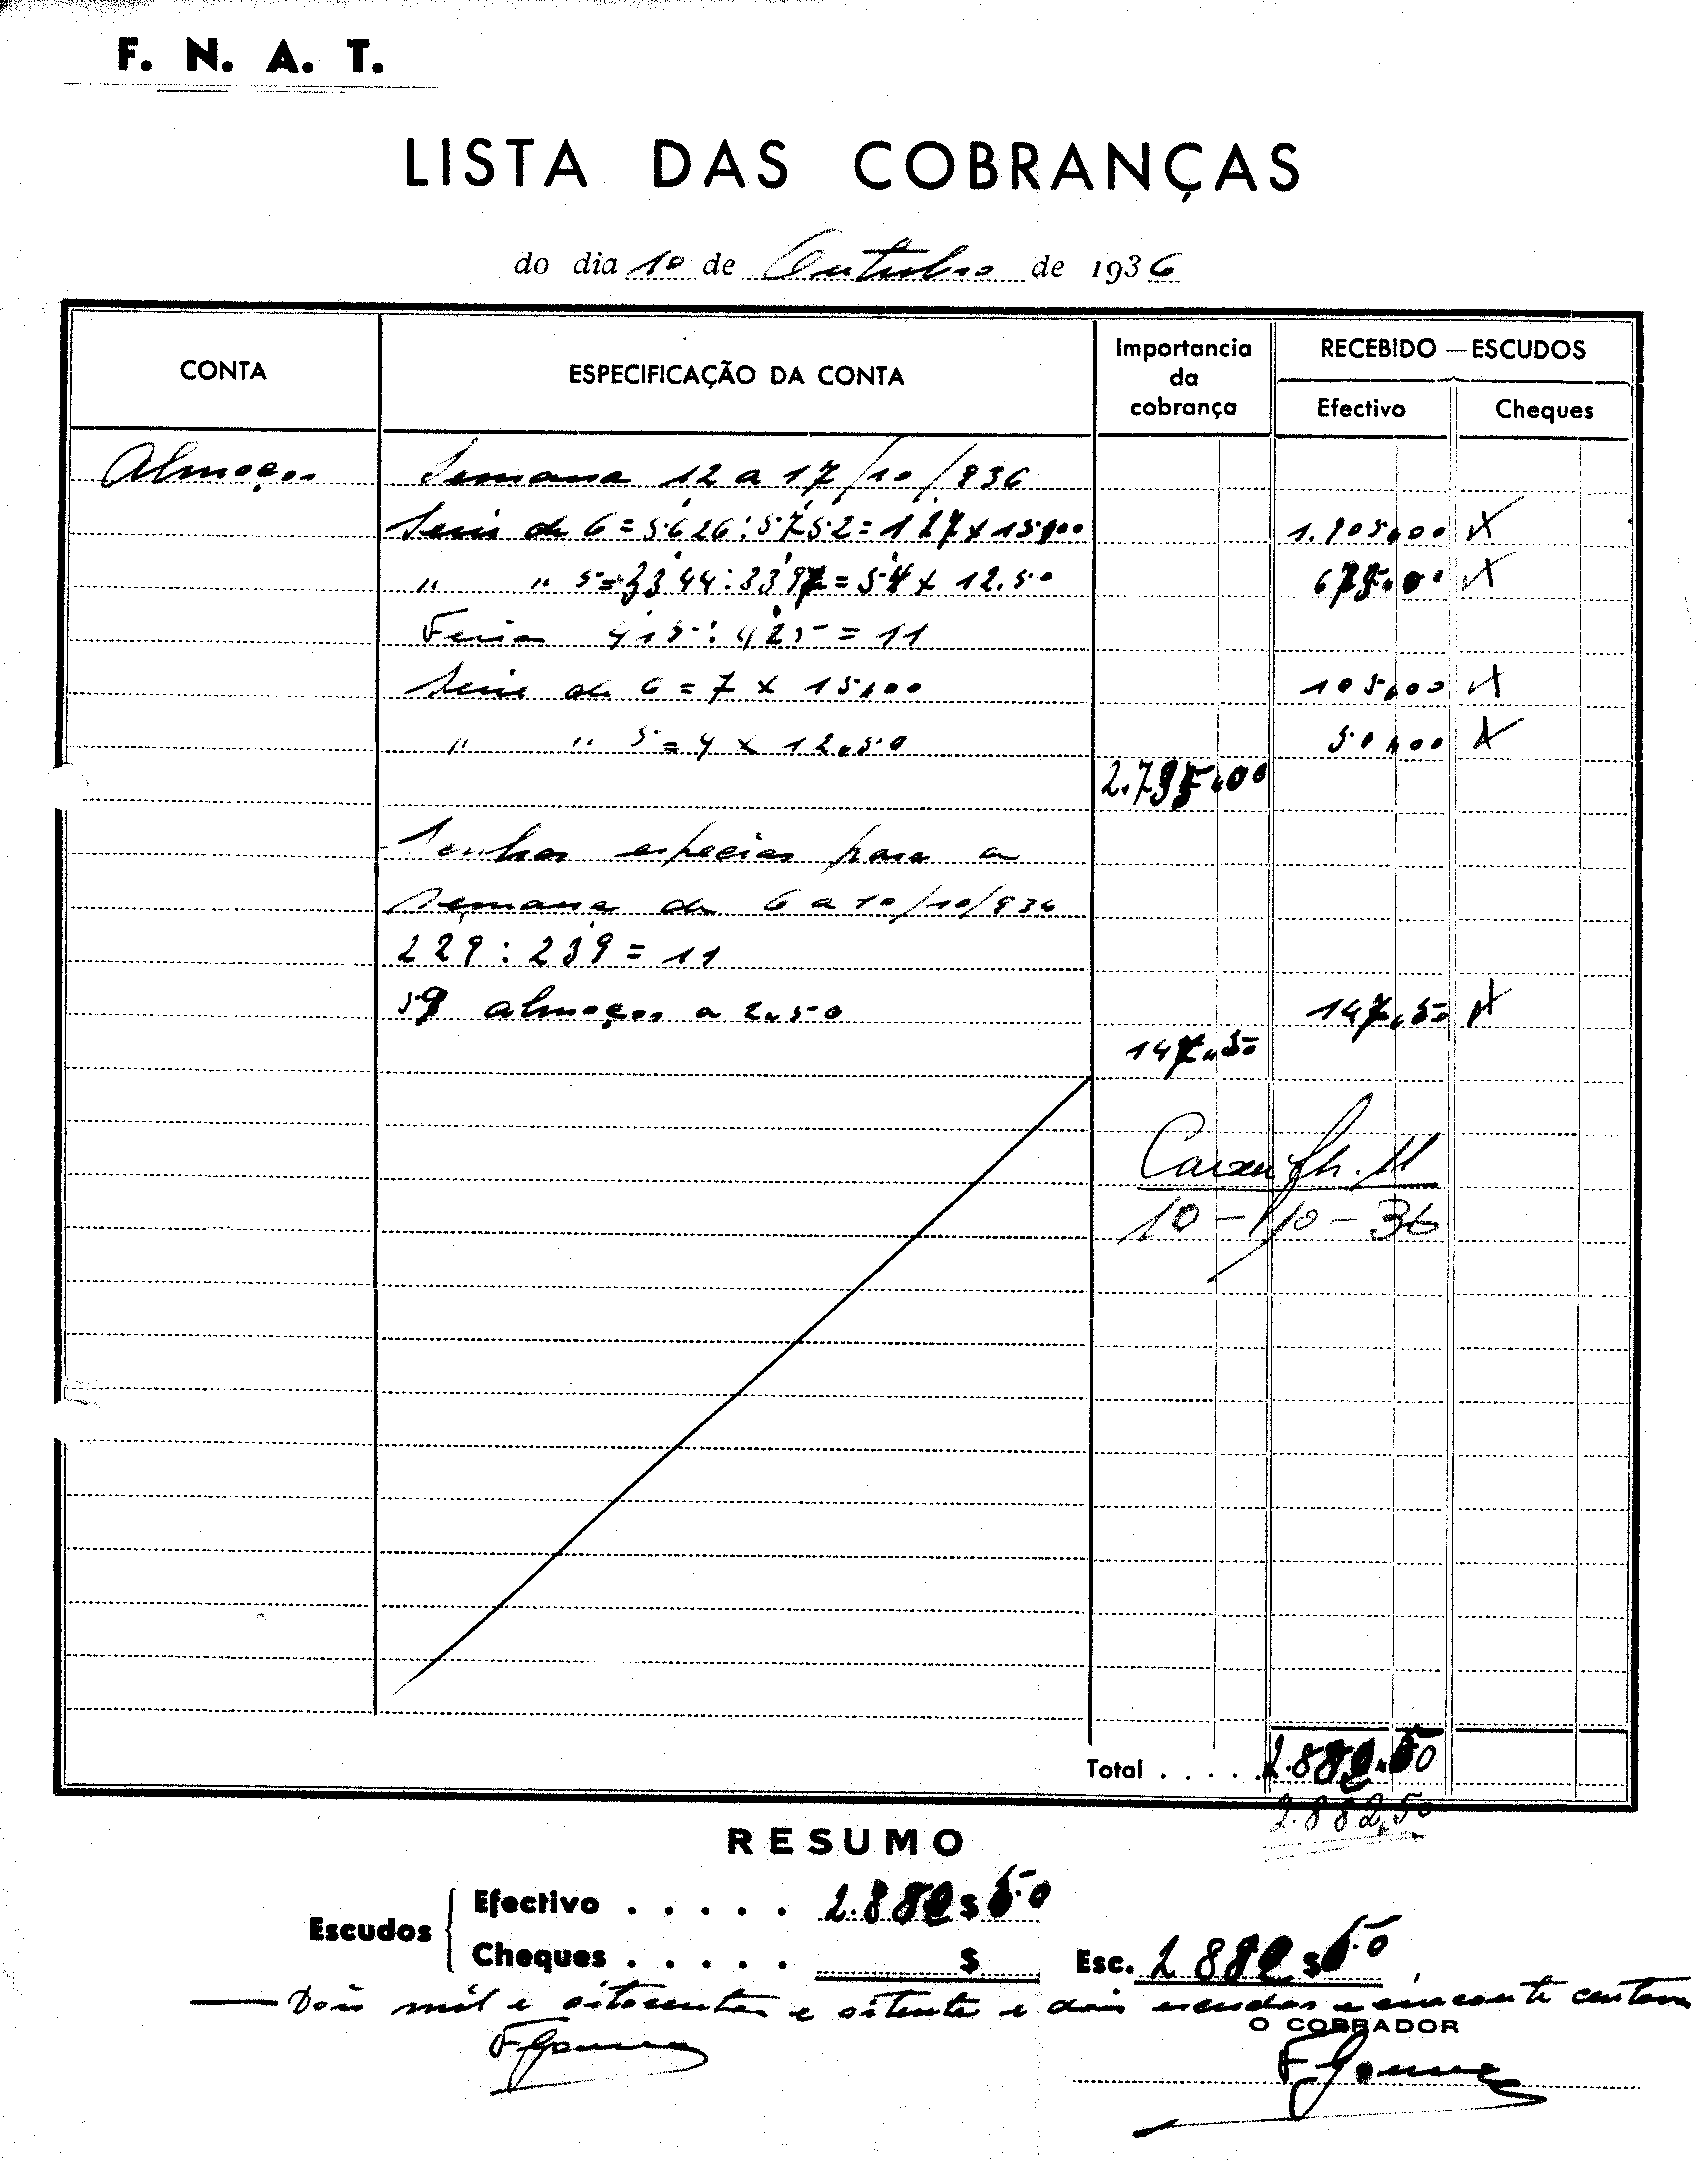 F. N. A. T.
LISTA DAS COBRANÇAS
do dia 10 de Outubro de 1936
CONTA
ESPECIFICAÇÃO DA CONTA
Importancia da cobrança
RECEBIDO — ESCUDOS
Efectivo
Cheques
Almoços Semana 12 a 17/10/936
Serie de 6 = 5626 : 5752 = 127 x 15,00 1.905,00 X
" " 5 = 3344 : 3397 = 54 x 12.50 675,00 X
Feria 415 : 425 = 11
Serie de 6 = 7 x 15,00 105,00 X
" " 5 = 4 x 12,50 50,00 X
2.735,00
Senhas especias para a
semana de 6 a 10/10/936
229 : 239 = 11
59 almoços a 2,50 147,50 X
147,50
10-10-36
Total . . . . . 2.882,50
2.882,50
RESUMO
Escudos
Efectivo . . . . . 2.882$50
Cheques . . . . . $
Esc. 2882$50
— Dois mil e oitocentos e oitenta e dois escudos e cincoenta centavos
O COBRADOR
F Gomes
F Gomes